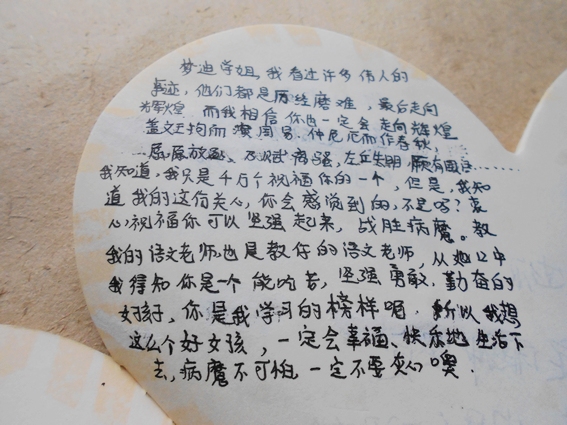 梦迪学姐,我看过许多伟人的
事迹,他们都是历经磨难,最后走向
辉煌 而我相信你也一定会走向辉煌
盖文王拘而演周易,仲尼厄而作春秋,
屈原放逐、乃赋离骚,左丘失明,厥有国语……
我知道,我只是千万个祝福你的一个,但是,我知
道我的这份关心,你会感觉到的,不是吗?衷
心祝福你可以坚强起来,战胜病魔。教
我的语文老师也是教你的语文老师,从她口中
我得知你是一个能吃苦,坚强勇敢,勤奋的
好孩子,你是我学习的榜样呢,所以我想
这么个好女孩,一定会幸福、快乐地生活下
去,病魔不可怕,一定不要灰心噢.